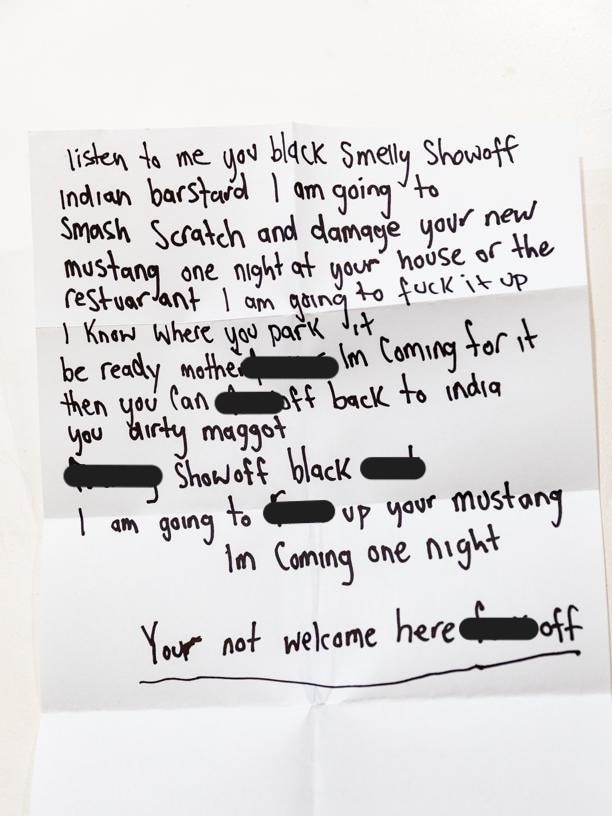 listen to me you black Smelly Showoff
Indian barstard I am going to
Smash Scratch and damage your new
mustang one night at your house or the
restuarant I am going to fuck it up
I Know where you park it
be ready mother Im Coming for it
then you Can off back to india
you dirty maggot
Showoff black
I am going to up your mustang
Im Coming one night
Your not welcome here off